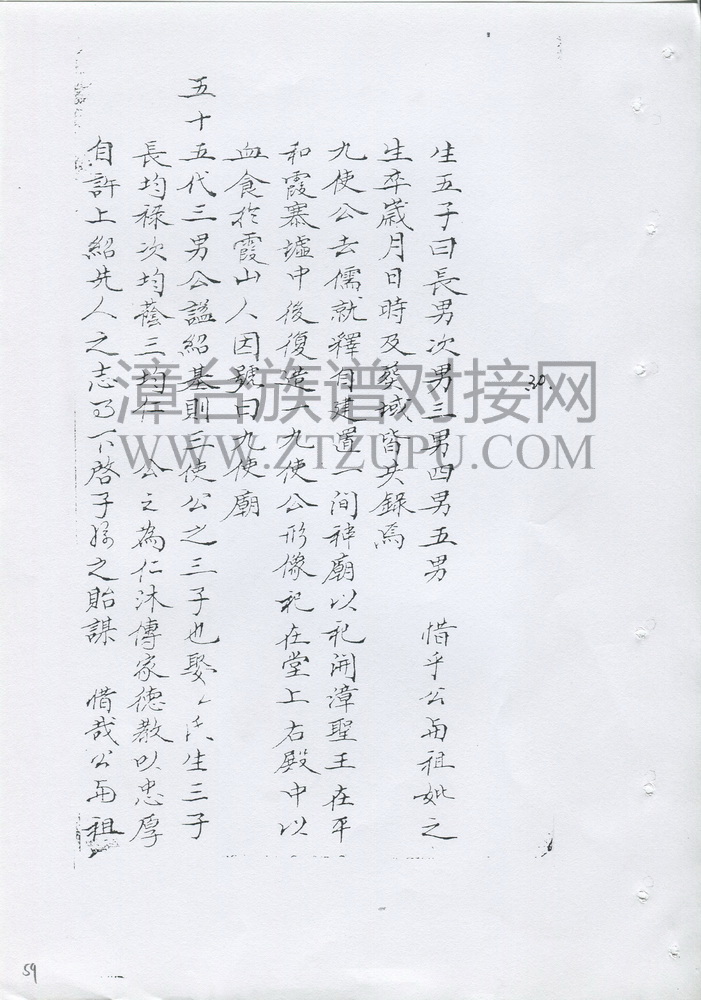 30.
生五子曰長男次男三男四男五男 惜乎公與祖妣之
生卒歲月日時及塋域皆失錄焉
九使公去儒就釋自建置一間神廟以祀開漳聖王在平
和霞寨墟中後復造一九使公形像祀在堂上右殿中以
血食於霞山人因號曰九使廟
五十五代三男公謚紹基則三使公之三子也娶 氏生三子
長均祿次均蔭三均仁 公之為仁沐傳家德教以忠厚
自許上紹先人之志 下啓子孫之貽謀 惜哉公與祖
漳台族谱对接网
WWW.ZTZUPU.COM
59